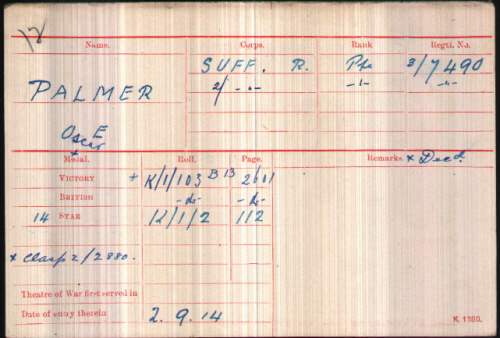 12
Name. Corps. Rank Regtl. No.
SUFF. R. Pte 3/7490
2/ -"- -"- -"-
PALMER
E
Oscar
Medal. Roll. Page. Remarks x Decd.
VICTORY + K/1/103 B 13 2601
BRITISH -do- -do-
14 STAR K/1/2 112
x Clasp 2/2880.
Theatre of War first served in
Date of entry therein 2.9.14
K 1380.